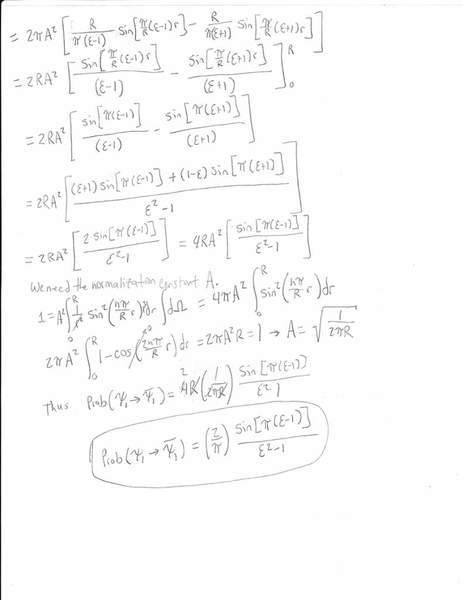 = 2πA² [ R/π(ε-1) sin[π/R(ε-1)r] - R/π(ε+1) sin[π/R(ε+1)r] ]
= 2RA² [ sin[π/R(ε-1)r]/(ε-1) - sin[π/R(ε+1)r]/(ε+1) ]₀ᴿ
= 2RA² [ sin[π(ε-1)]/(ε-1) - sin[π(ε+1)]/(ε+1) ]
= 2RA² [ (ε+1) sin[π(ε-1)] + (1-ε) sin[π(ε+1)] / ε²-1 ]
= 2RA² [ 2·sin[π(ε-1)] / ε²-1 ] = 4RA² [ sin[π(ε-1)] / ε²-1 ]
We need the normalization constant A.
1 = A² ∫₀ᴿ 1/r² sin²(nπ/R r) r² dr ∫dΩ = 4πA² ∫₀ᴿ sin²(nπ/R r) dr
2πA² ∫₀ᴿ 1-cos(2nπ/R r) dr = 2πA²R = 1 → A = √(1/2πR)
Thus Prob(ψ₁→ψ̄₁) = 4R (1/2πR) sin[π(ε-1)] / ε²-1
Prob(ψ₁→ψ̄₁) = (2/π) sin[π(ε-1)] / ε²-1